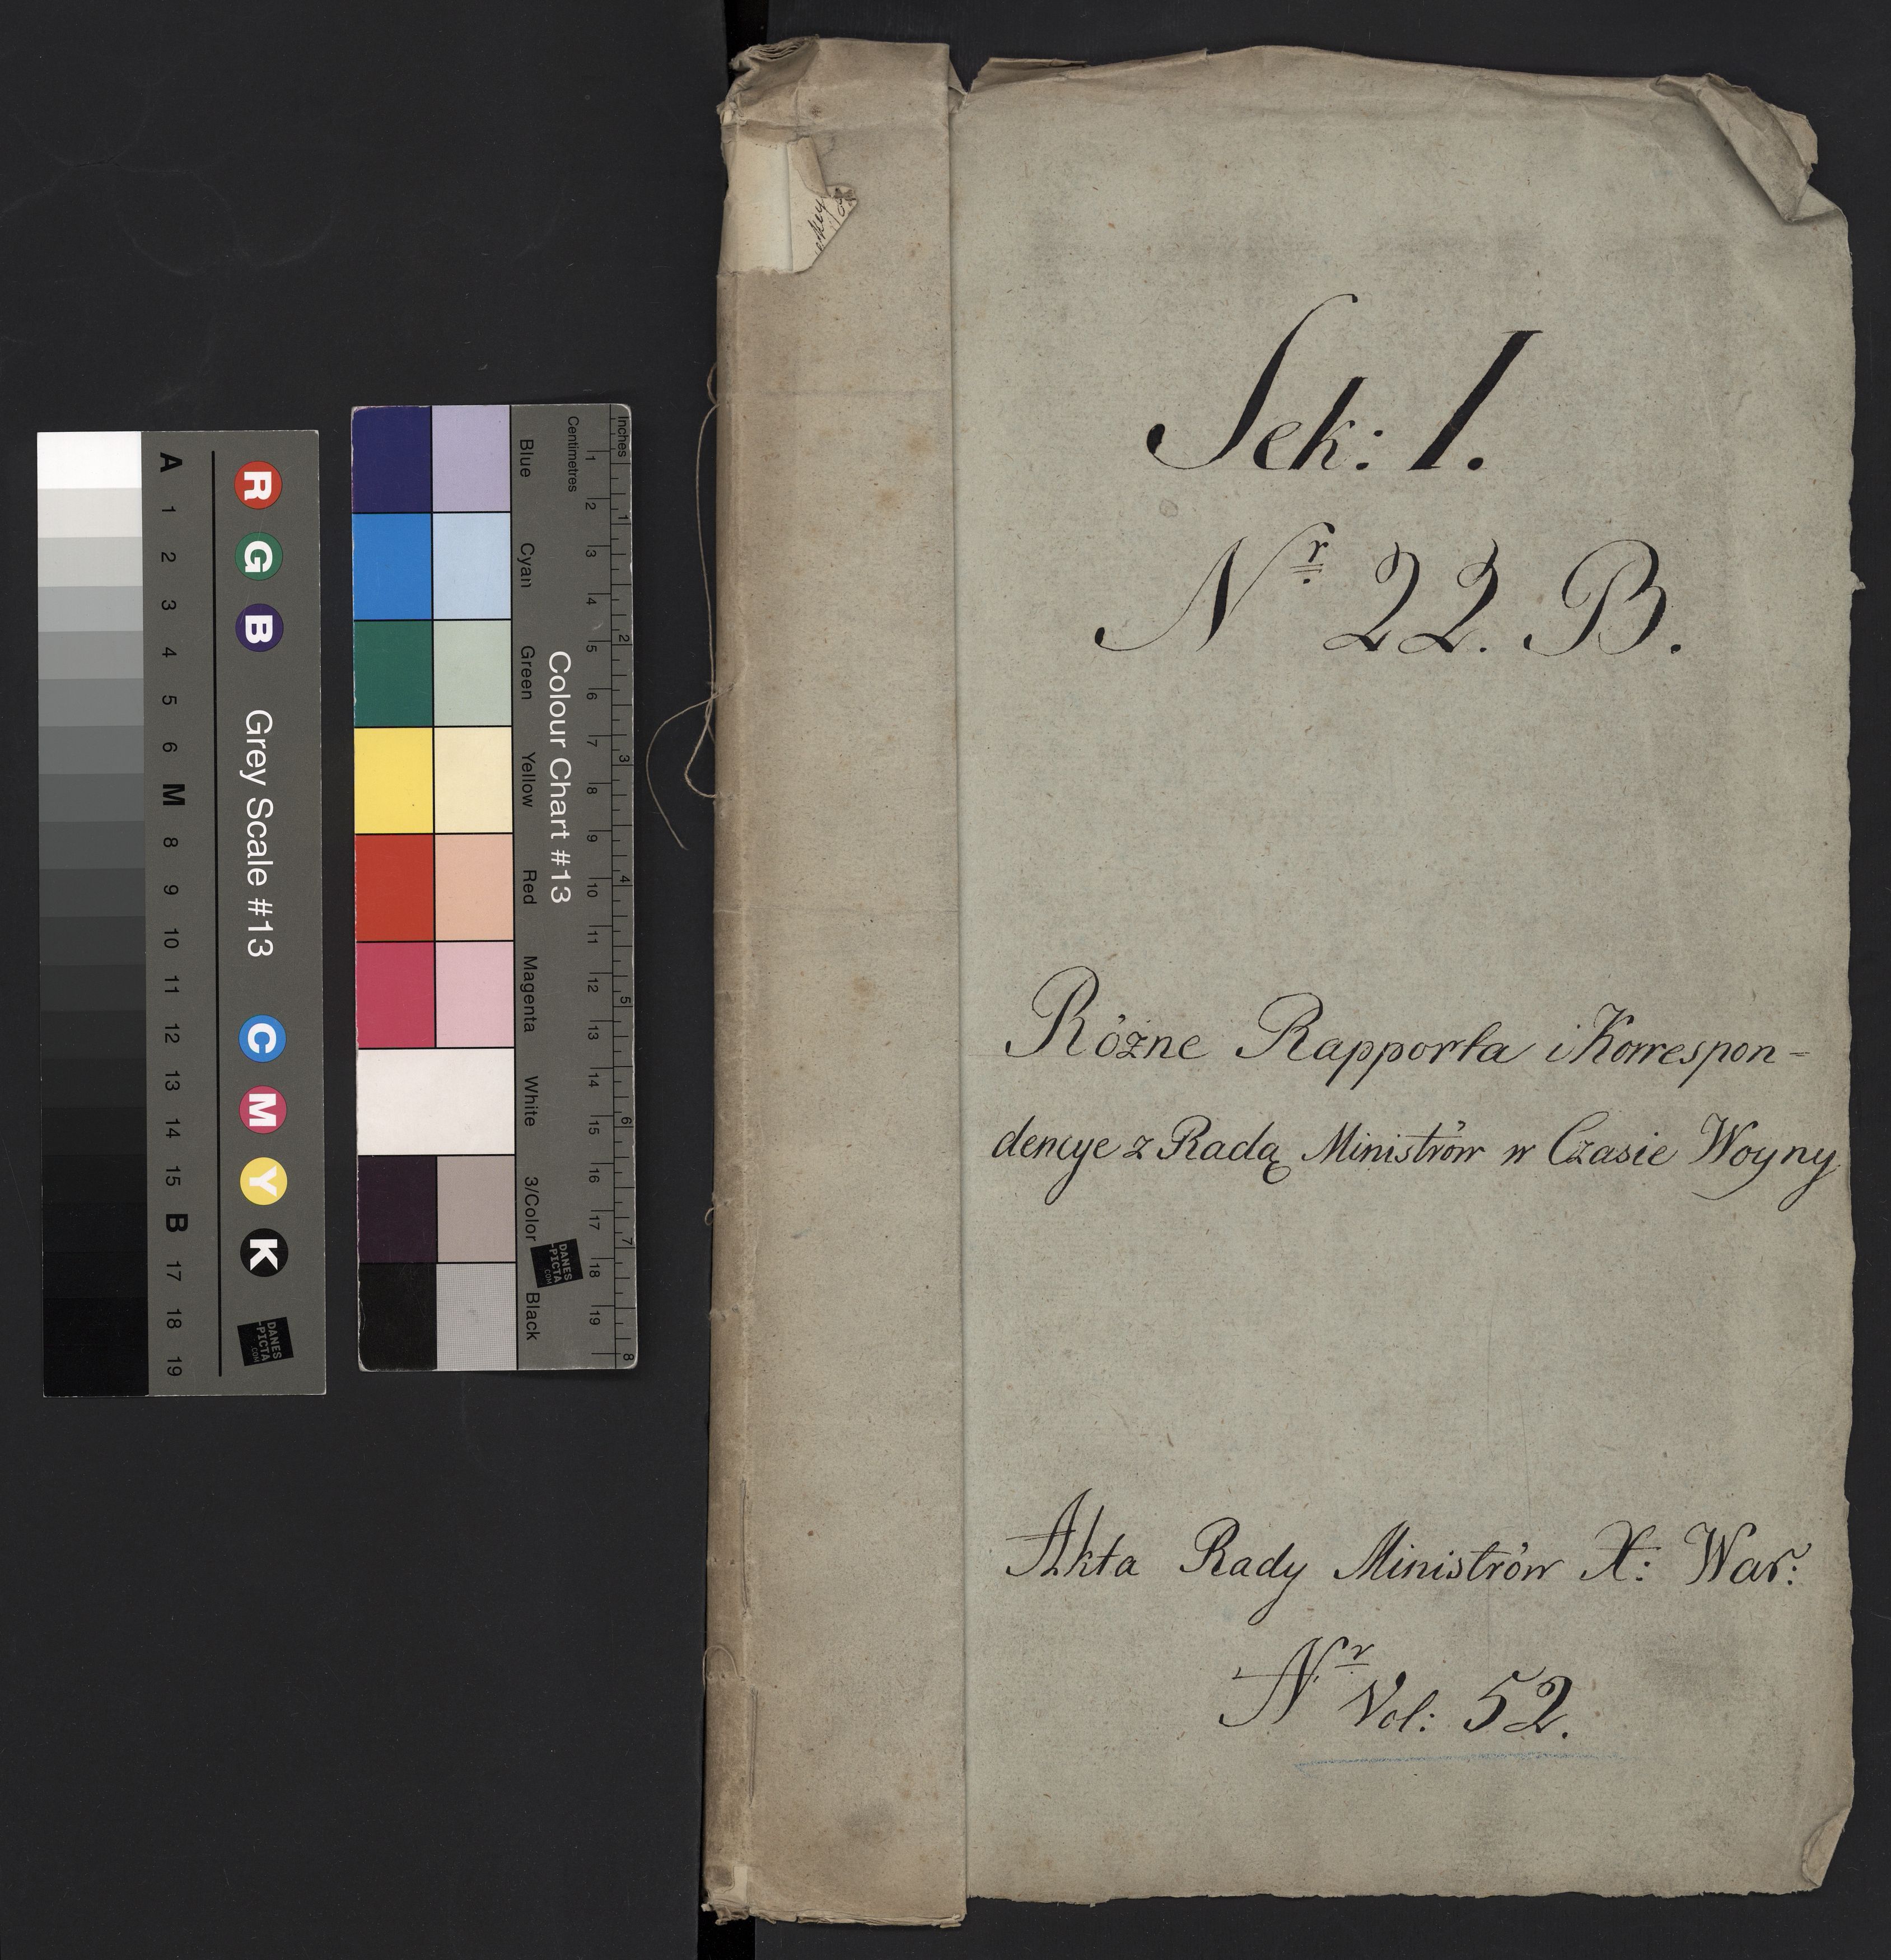 Sek: I.
Nr 22. B.
Rózne Rapporta i Korrespon-
dencye z Radą Ministrów w Czasie Woyny
Akta Rady Ministrów X: War:
Nr Vol: 52.
A 1 2 3 4 5 6 M 8 9 10 11 12 13 14 15 B 17 18 19
R G B Grey Scale #13 C M Y K
DANES
-PICTA
.COM
Blue Cyan Green Yellow Red Magenta White 3/Color Black
Colour Chart #13
DANES
-PICTA
.COM
Centimetres 1 2 3 4 5 6 7 8 9 10 11 12 13 14 15 16 17 18 19
Inches 1 2 3 4 5 6 7 8